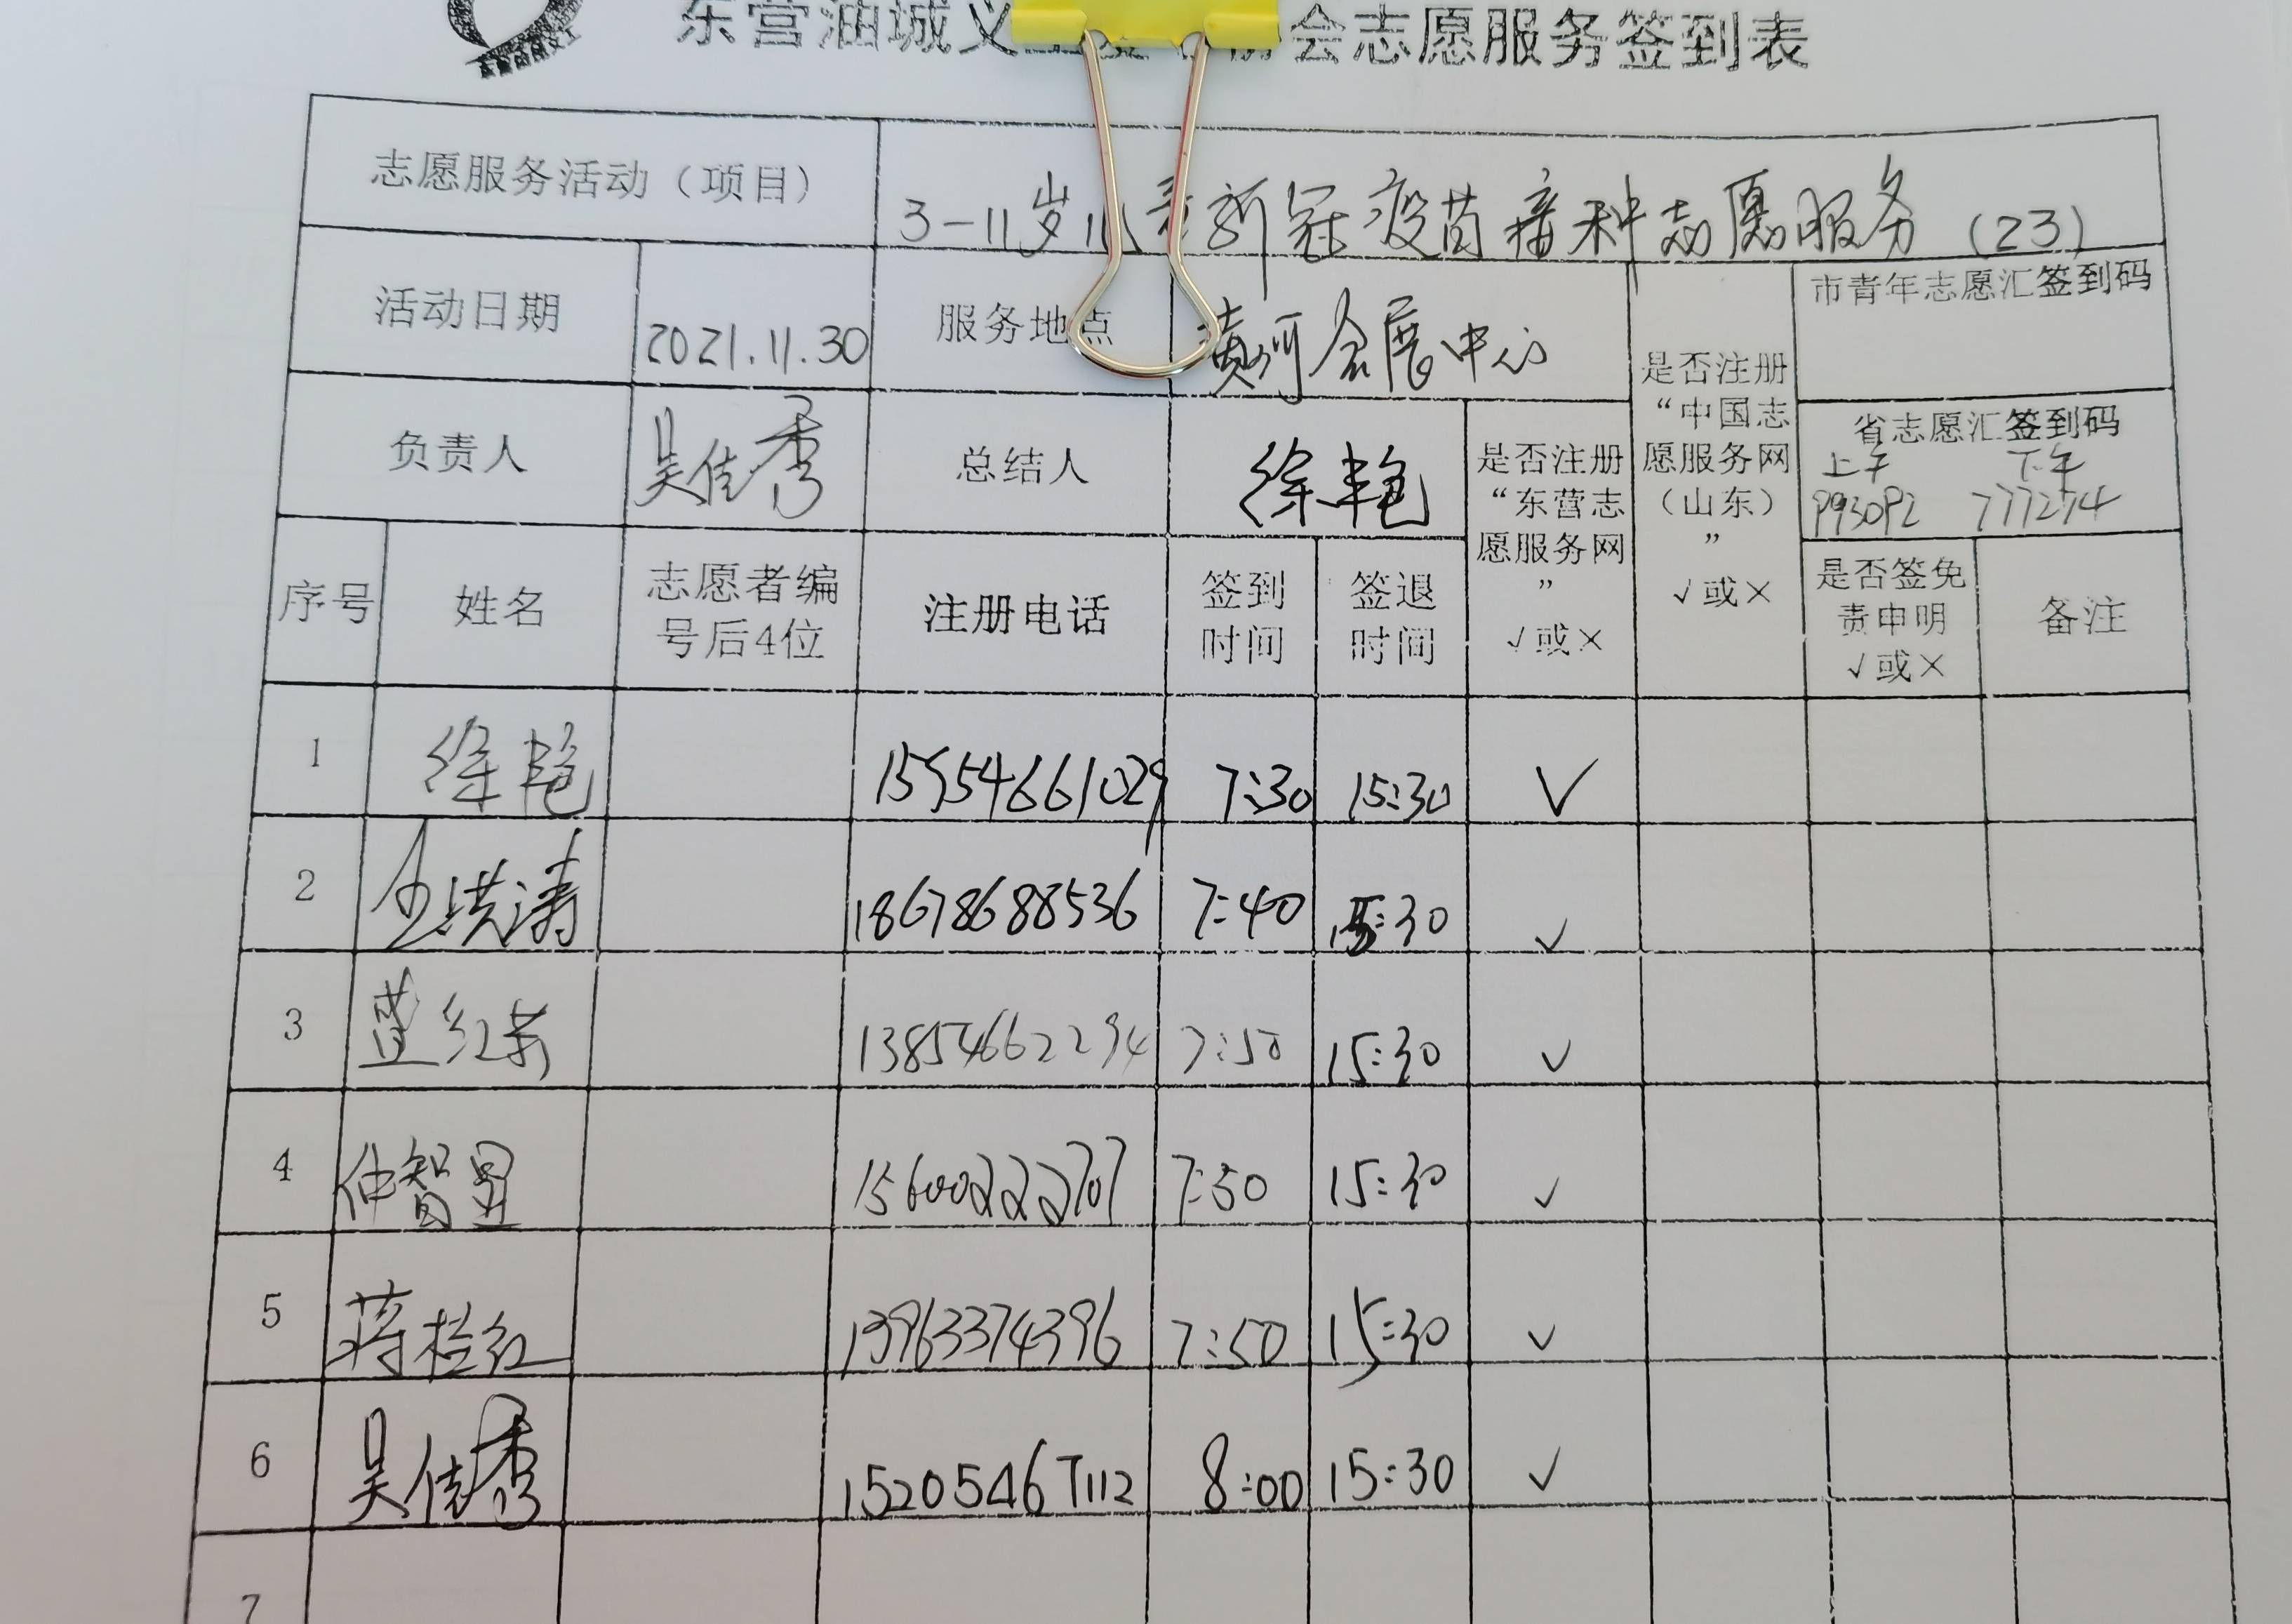 东营油城义工 会志愿服务签到表
志愿服务活动（项目） 3-11岁儿童新冠疫苗接种志愿服务（23）
活动日期 2021.11.30 服务地点 黄河会展中心 是否注册“中国志愿服务网（山东）” √或× 市青年志愿汇签到码
负责人 吴佳秀 总结人 徐艳 是否注册“东营志愿服务网” √或× 省志愿汇签到码
上午 下午
993092 777274
序号 姓名 志愿者编号后4位 注册电话 签到时间 签退时间 是否签免责申明 √或× 备注
1 徐艳 15954661029 7:30 15:30 √
2 洪涛 18678688536 7:40 15:30 √
3 红芳 13854662294 7:50 15:30 √
4 仲智昱 15600222707 7:50 15:30 √
5 蒋桂红 13963374396 7:50 15:30 √
6 吴佳秀 15205467112 8:00 15:30 √
7